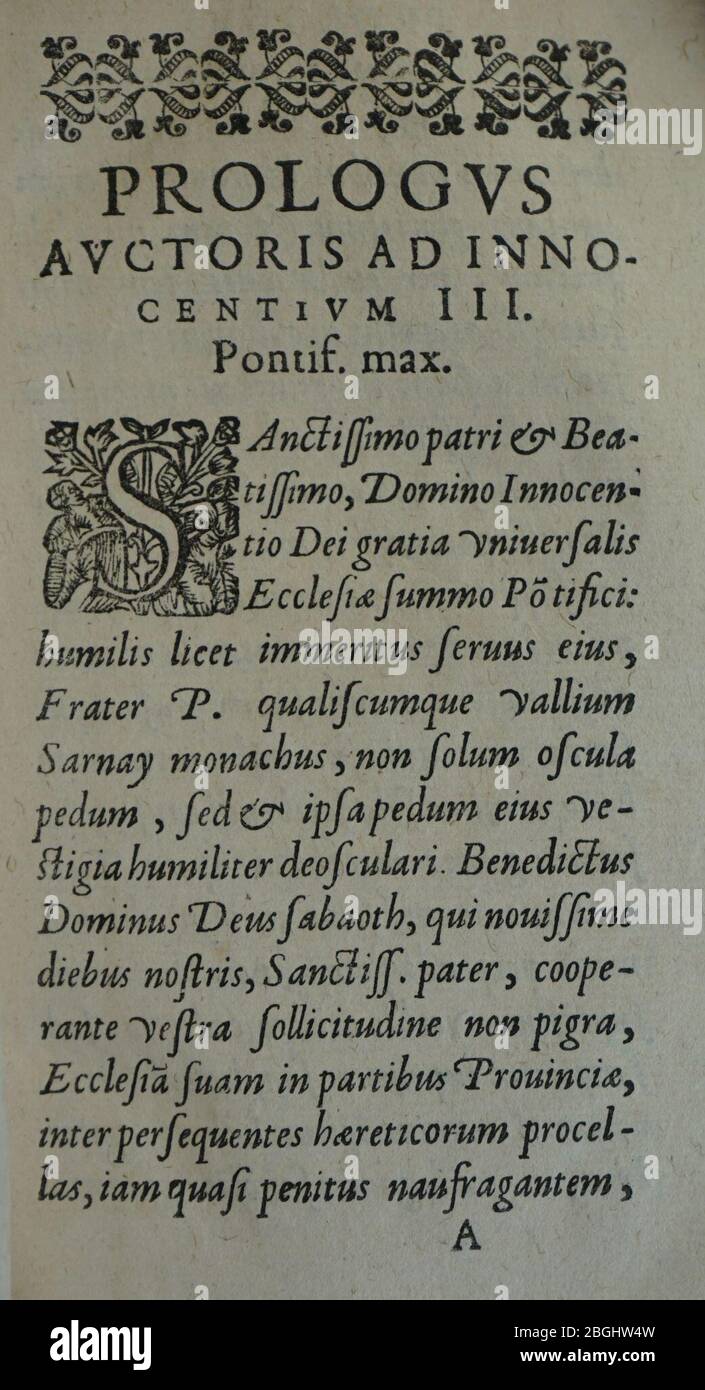 PROLOGVS
AVCTORIS AD INNO-
CENTIVM III.
Pontif. max.
SAnctiſſimo patri & Bea-
tiſſimo, Domino Innocen-
tio Dei gratia vniuerſalis
Eccleſiæ ſummo Põtifici:
humilis licet immeritus ſeruus eius,
Frater P. qualiſcumque vallium
Sarnay monachus, non ſolum oſcula
pedum, ſed & ipſa pedum eius ve-
ſtigia humiliter deoſculari. Benedictus
Dominus Deus ſabaoth, qui nouiſſime
diebus noſtris, Sanctiſſ. pater, coope-
rante veſtra ſollicitudine non pigra,
Eccleſiã ſuam in partibus Prouinciæ,
inter perſequentes hæreticorum procel-
las, iam quaſi penitus naufragantem,
A
alamy
Image ID: 2BGHW4W
www.alamy.com